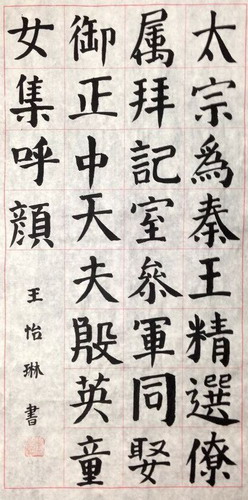 太宗為秦王精選僚
属拜記室參軍同娶
御正中大夫殷英童
女集呼顏
王怡琳書